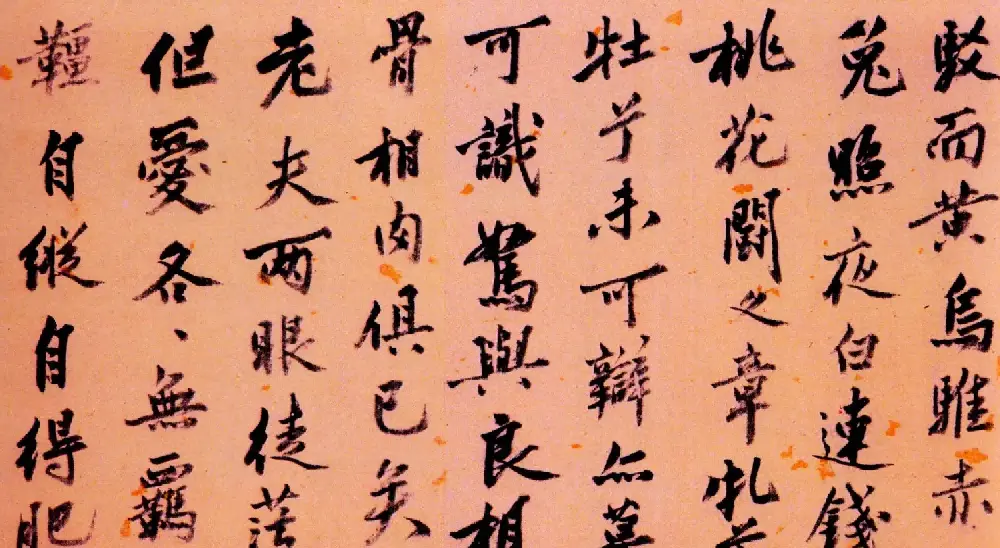 駁而黃烏騅赤
兔照夜白連錢
桃花之章牝
牡兮未可辯亦莫
可識駑與良相
骨相肉俱已矣
老夫兩眼徒茫
但愛各〻無羈
韁自縱自得肥